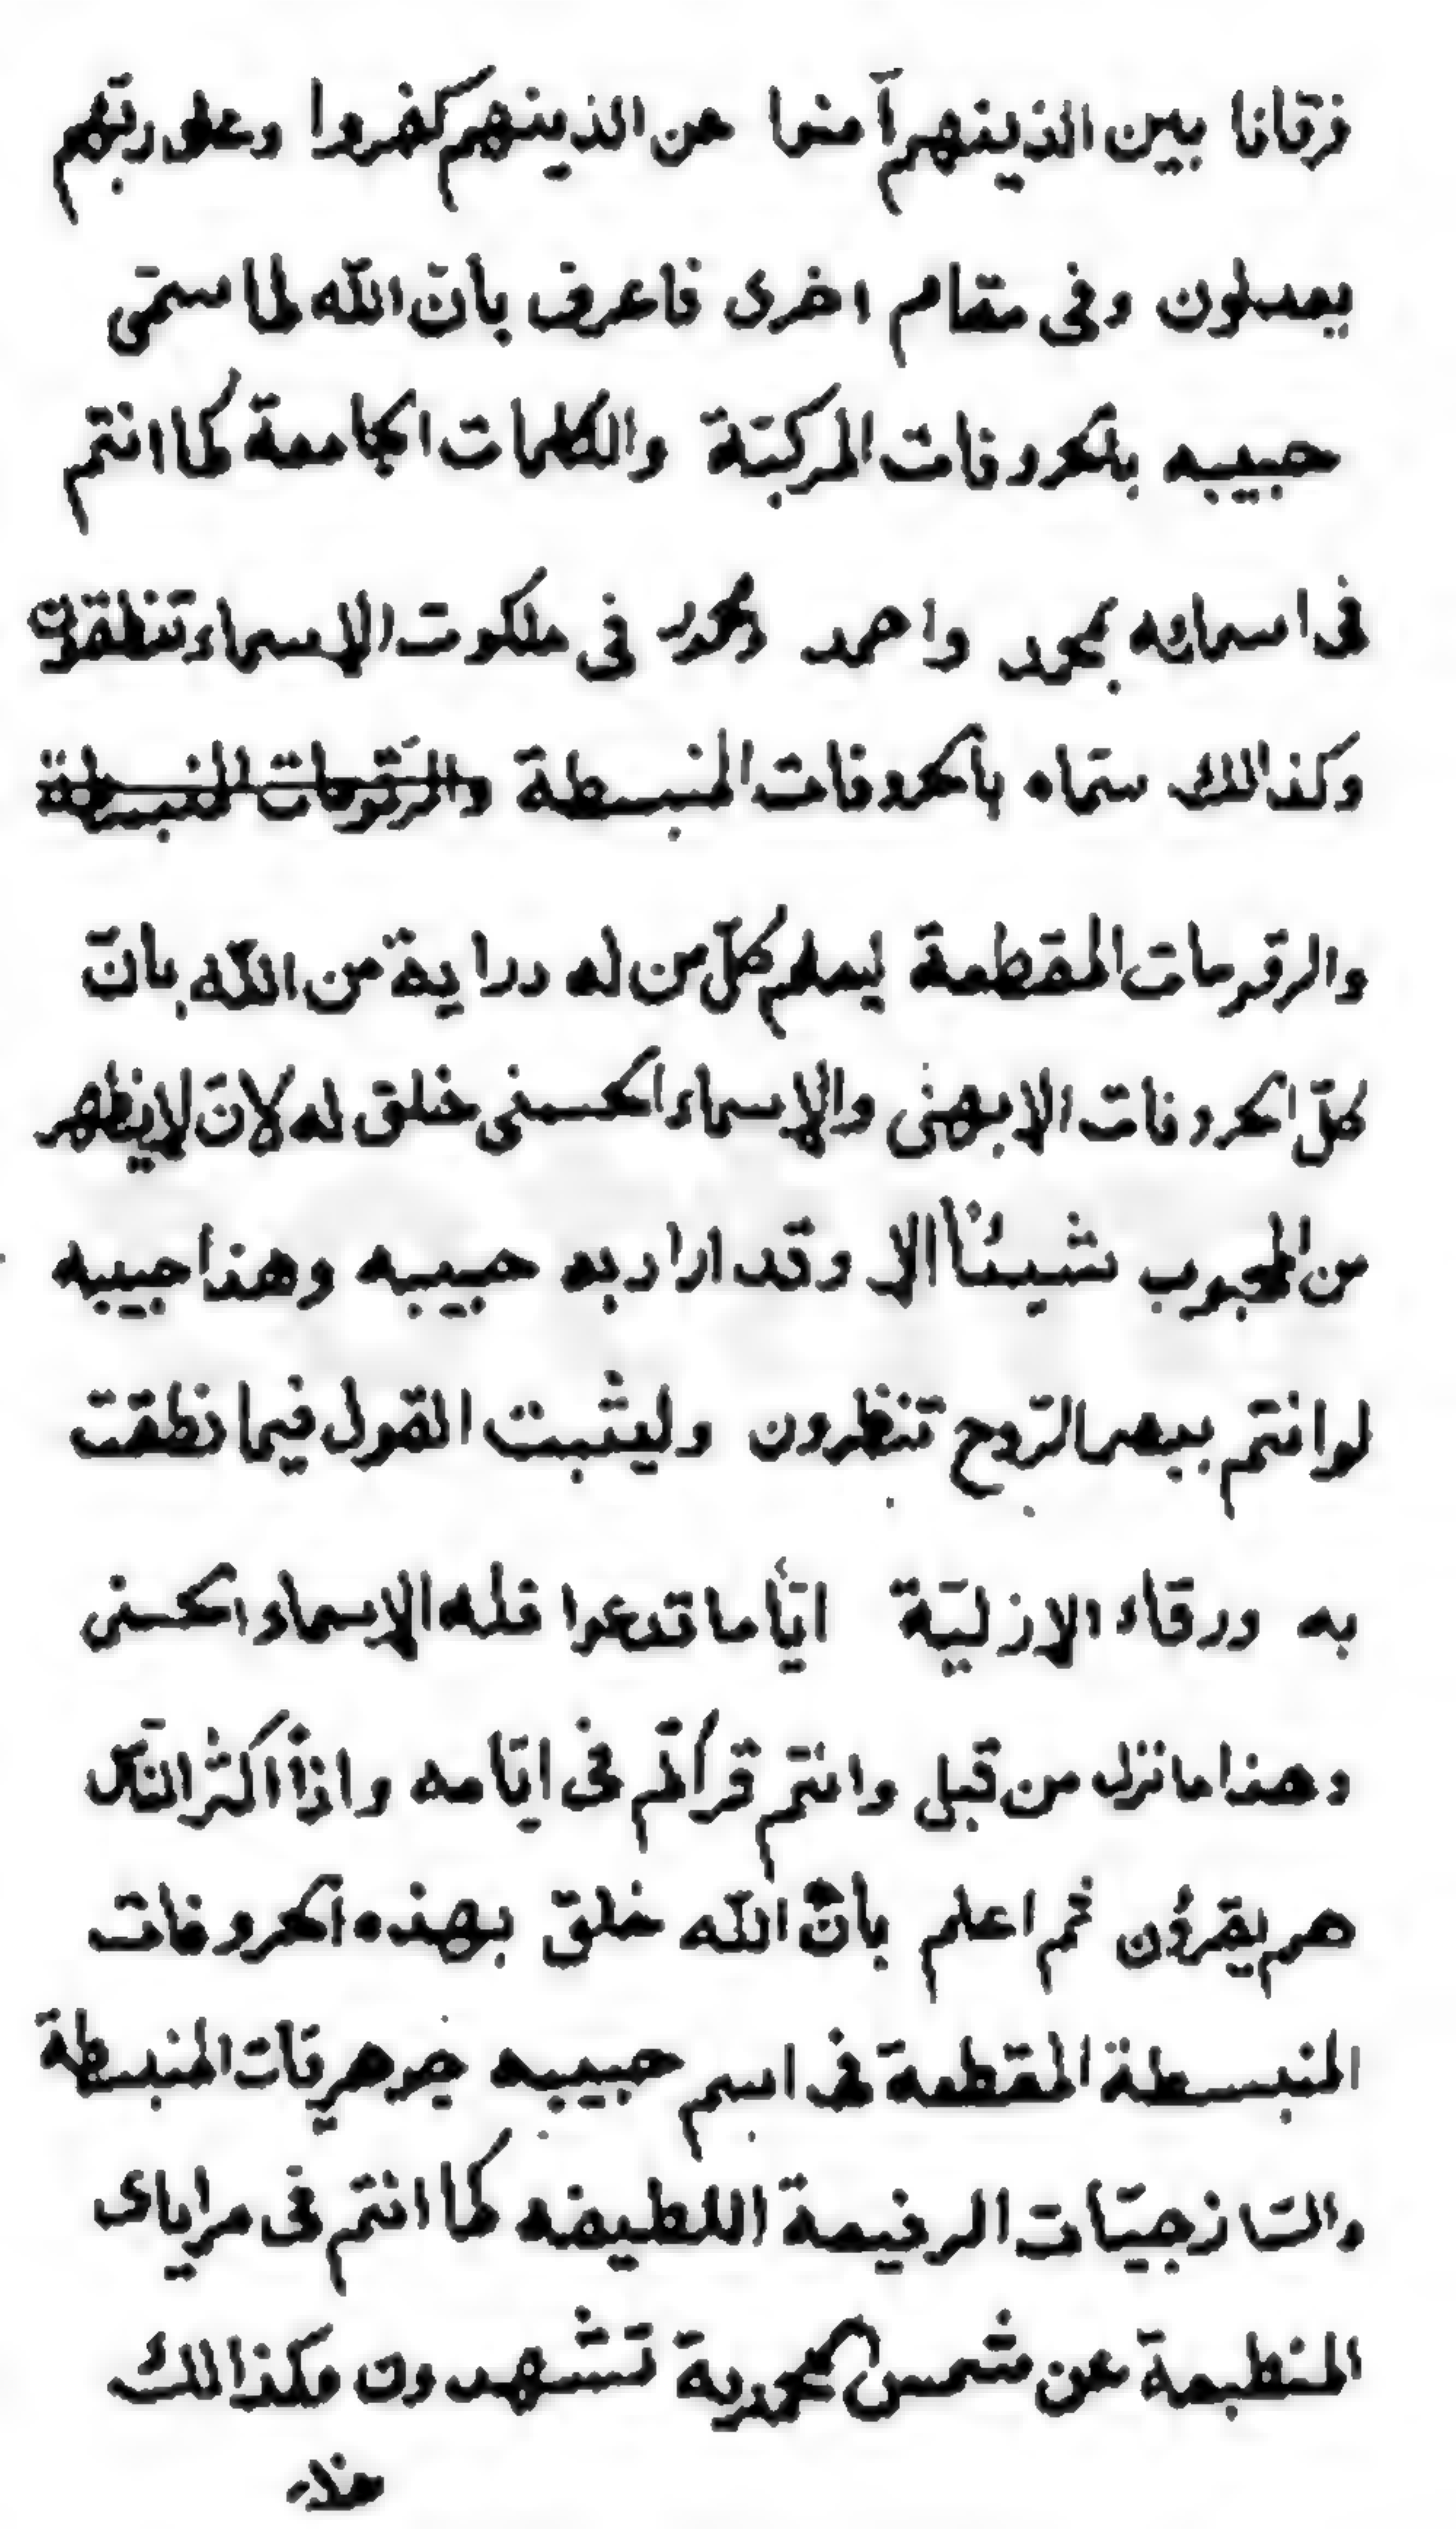 فرقانا بين الذينهم آمنوا عن الذينهم كفروا وعلى ربّهم
يعدلون وفى مقام اخرى فاعرف بانّ اللّه لما سمّى
حبيبه بالحروفات المركبّة والكلمات الجامعة كما انتم
فى اسمائه بمحمد واحمد ومحمود فى ملكوت الاسماء تنطقون
وكذالك سمّاه بالحروفات المنبسطة والرّقومات المنبسطة
والرقومات المقطعة ليعلم كلّ من له دراية من اللّه بانّ
كلّ الحروفات الابهى والاسماء الحسنى خلق له لانّ لا يظهر
من المحبوب شيئاً الا وقد اراد به حبيبه وهذا حبيبه
لو انتم ببصر الرّوح تنظرون وليثبت القول فيما نطقت
به ورقاء الازليّة ايّاً ما تدعوا فله الاسماء الحسنى
وهذا ما نزل من قبل وانتم قرأتم فى ايّامه واذاً اكثر النّاس
هم يقرؤن ثم اعلم بانّ اللّه خلق بهذه الحروفات
المنبسطة المقطعة فى اسم حبيبه جوهريّات المنبسطة
والسّاذجيّات الرفيعة اللطيفه كما انتم فى مراياى
المنطبعة عن شمس المحمدية تشهدون وكذالك